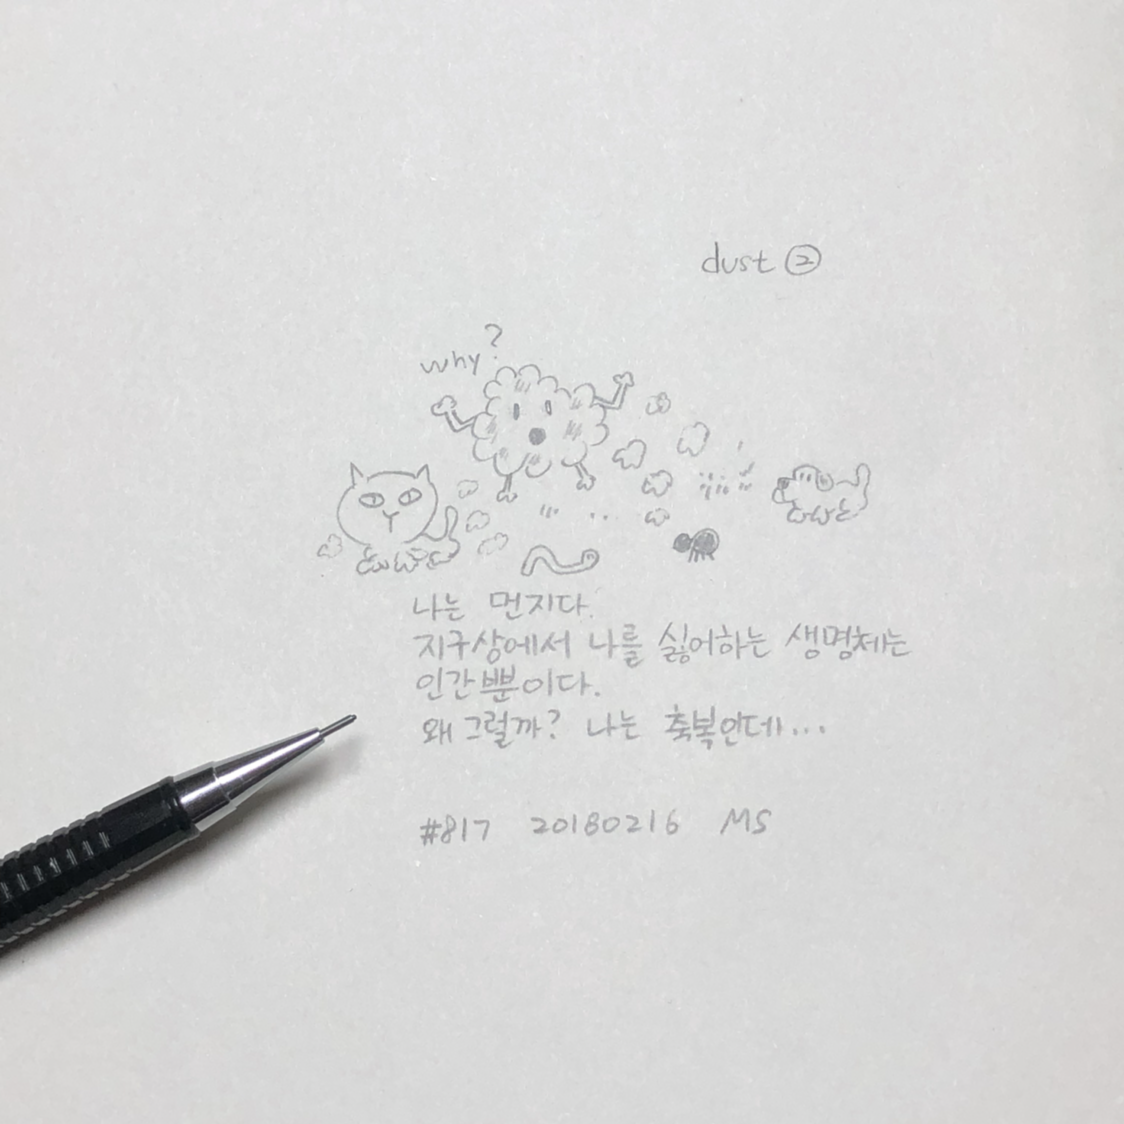 dust ②
why?
나는 먼지다.
지구상에서 나를 싫어하는 생명체는
인간뿐이다.
왜 그럴까? 나는 축복인데...
#817 20180216 MS